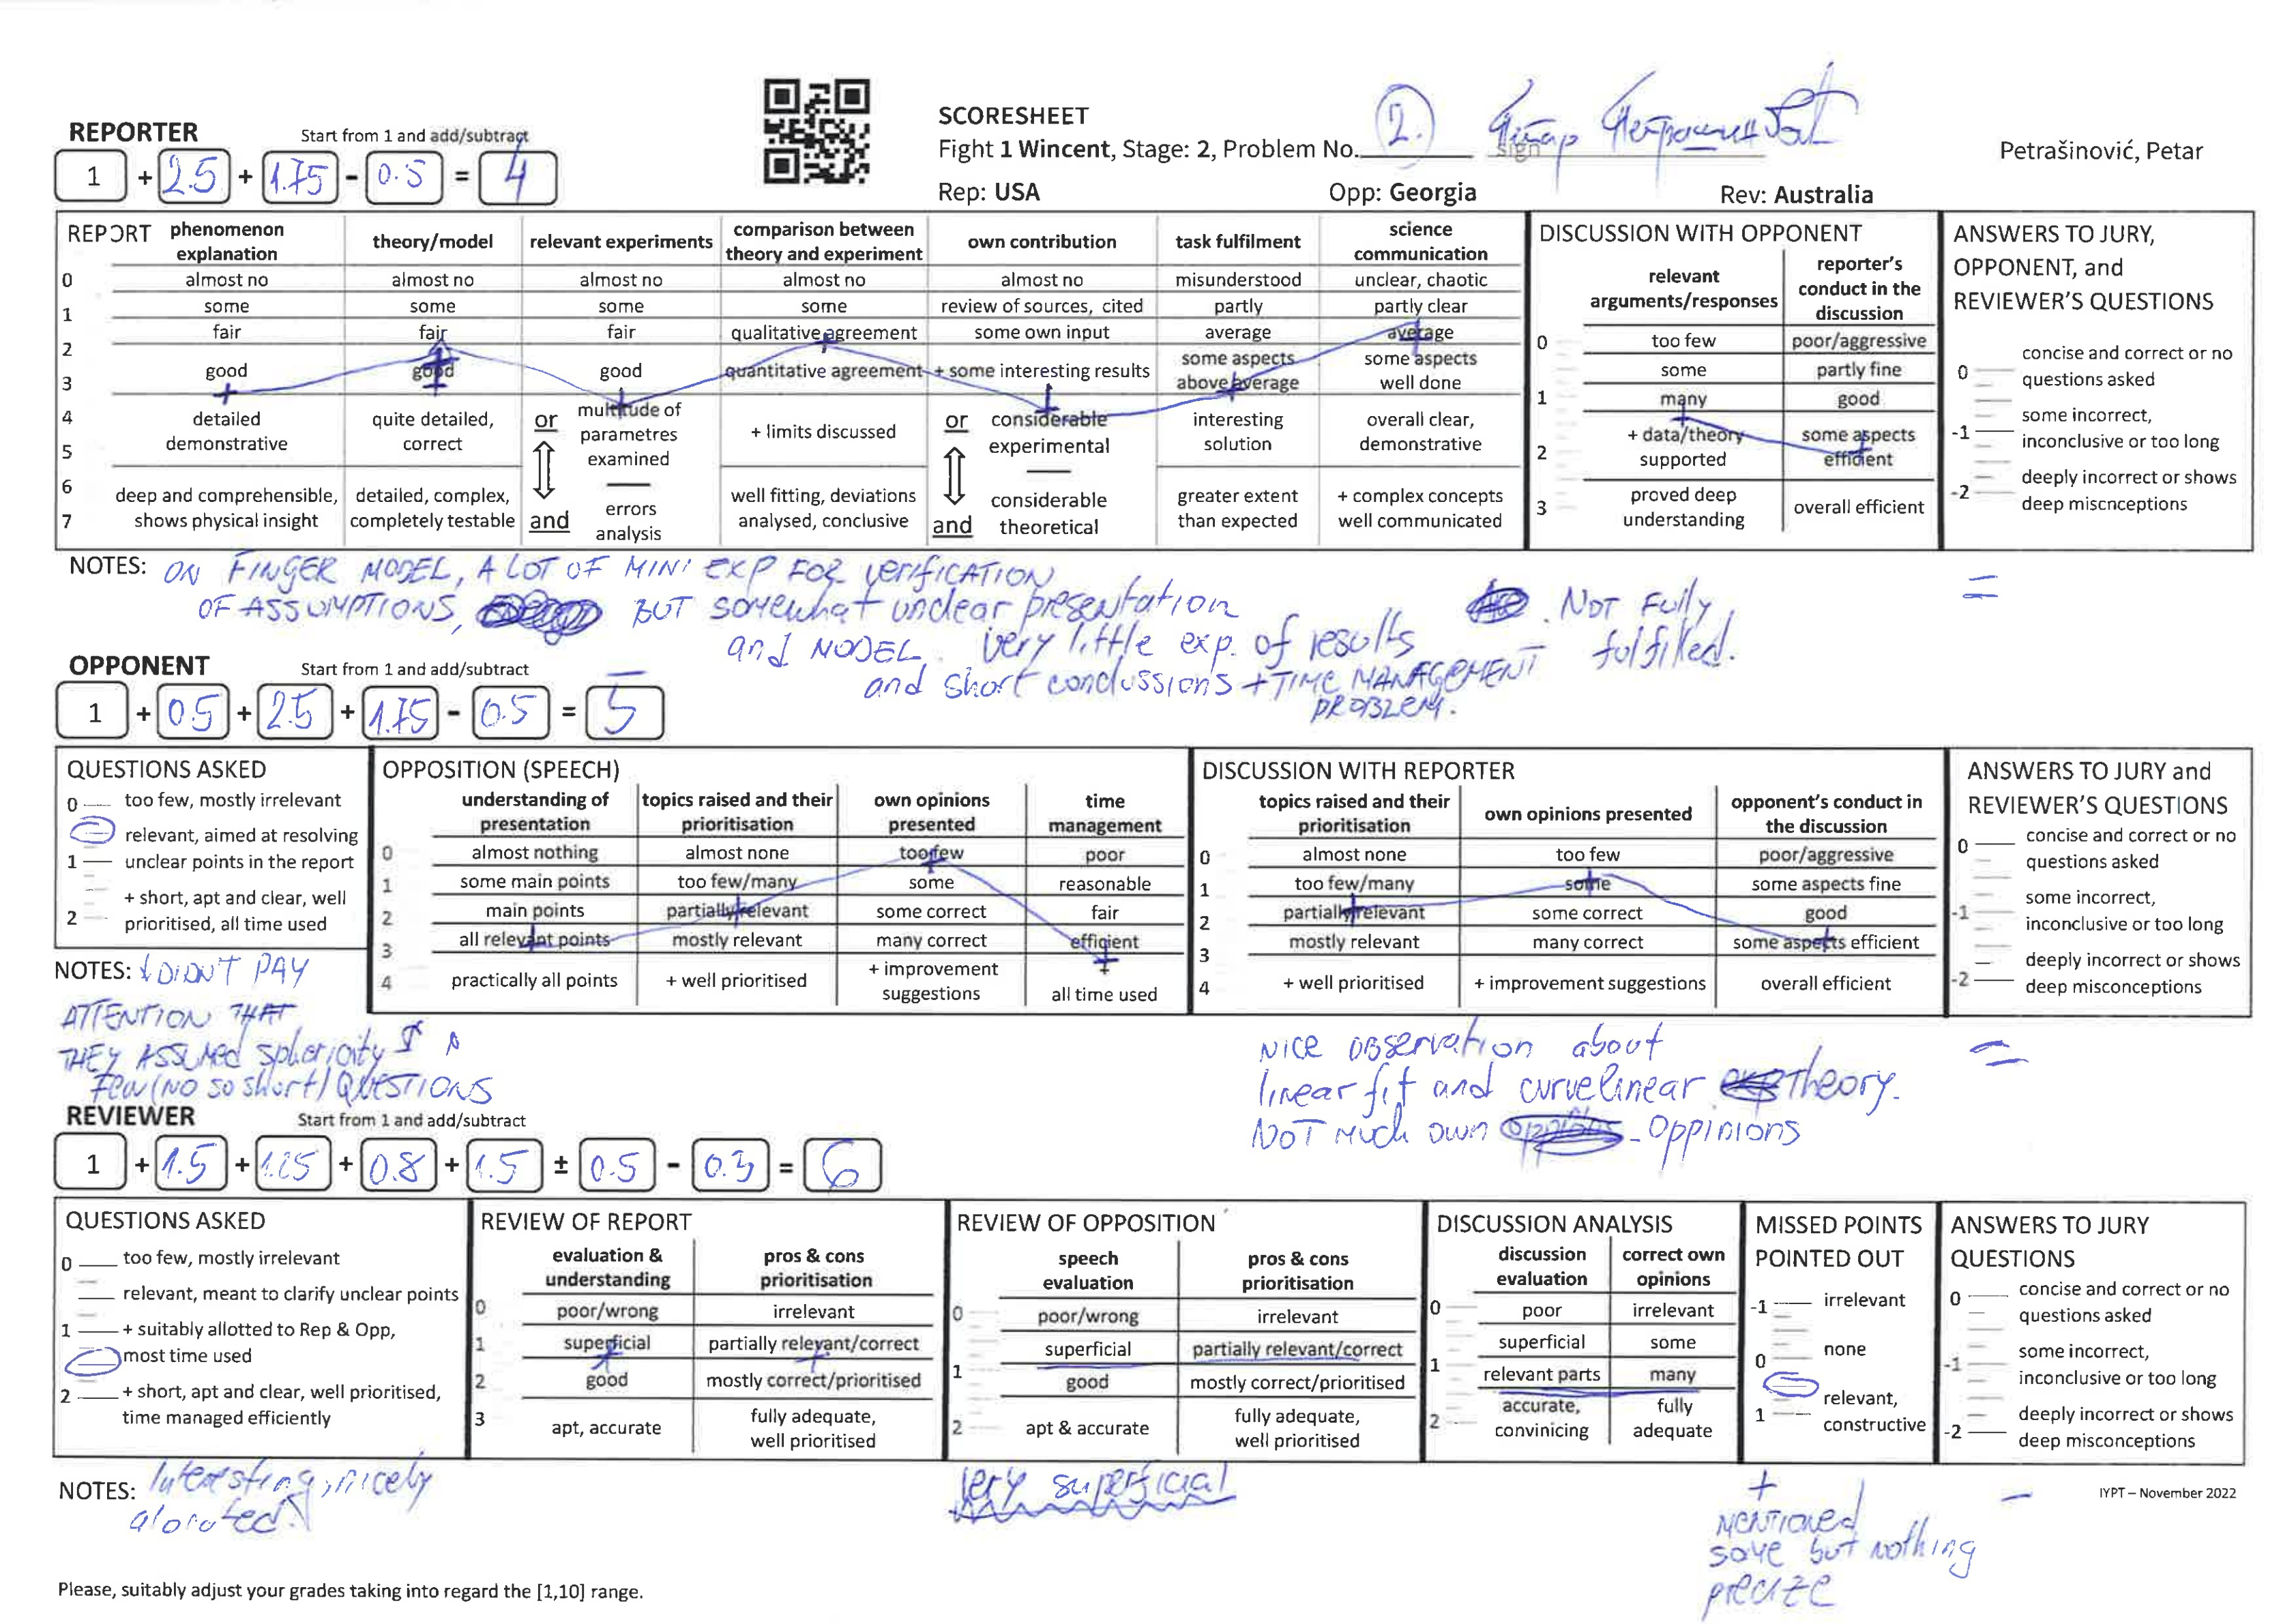 SCORESHEET
Fight 1 Wincent, Stage: 2, Problem No. 2.
sign
Петар
Petrašinović, Petar
Rep: USA Opp: Georgia Rev: Australia
REPORTER Start from 1 and add/subtract
1 + 2.5 + 1.75 - 0.5 = 4
REPORT
phenomenon explanation
theory/model
relevant experiments
comparison between theory and experiment
own contribution
task fulfilment
science communication
0 almost no almost no almost no almost no almost no misunderstood unclear, chaotic
1 some some some some review of sources, cited partly partly clear
2 fair fair fair qualitative agreement some own input average average
3 good good good quantitative agreement + some interesting results some aspects above average some aspects well done
4
5
detailed demonstrative
quite detailed, correct
or
multitude of parametres examined
+ limits discussed
or
considerable experimental
interesting solution
overall clear, demonstrative
6
7
deep and comprehensible, shows physical insight
detailed, complex, completely testable
and
errors analysis
well fitting, deviations analysed, conclusive
and
considerable theoretical
greater extent than expected
+ complex concepts well communicated
DISCUSSION WITH OPPONENT
relevant arguments/responses
reporter's conduct in the discussion
0 too few poor/aggressive
some partly fine
1 many good
2 + data/theory supported some aspects efficient
3 proved deep understanding overall efficient
ANSWERS TO JURY, OPPONENT, and REVIEWER'S QUESTIONS
0 concise and correct or no questions asked
-1 some incorrect, inconclusive or too long
-2 deeply incorrect or shows deep miscnceptions
NOTES: ON FINGER MODEL, A LOT OF MINI EXP FOR VERIFICATION
OF ASSUMPTIONS, BUT somewhat unclear presentation
and MODEL. Very little exp. of results
and short conclussions + TIME MANAGEMENT
PROBLEM.
. NOT Fully
fulfilled.
OPPONENT Start from 1 and add/subtract
1 + 0.5 + 2.5 + 1.75 - 0.5 = 5
QUESTIONS ASKED
0 too few, mostly irrelevant
relevant, aimed at resolving
1 unclear points in the report
+ short, apt and clear, well
2 prioritised, all time used
OPPOSITION (SPEECH)
understanding of presentation
topics raised and their prioritisation
own opinions presented
time management
0 almost nothing almost none too few poor
1 some main points too few/many some reasonable
2 main points partially relevant some correct fair
3 all relevant points mostly relevant many correct efficient
4 practically all points + well prioritised + improvement suggestions all time used
DISCUSSION WITH REPORTER
topics raised and their prioritisation
own opinions presented
opponent's conduct in the discussion
0 almost none too few poor/aggressive
1 too few/many some some aspects fine
2 partially relevant some correct good
3 mostly relevant many correct some aspects efficient
4 + well prioritised + improvement suggestions overall efficient
ANSWERS TO JURY and REVIEWER'S QUESTIONS
0 concise and correct or no questions asked
-1 some incorrect, inconclusive or too long
-2 deeply incorrect or shows deep misconceptions
NOTES: DIDN'T PAY
ATTENTION THAT
THEY ASSUMED sphericity
FEW (NO SO short) QUESTIONS
NICE OBSERVATION about
linear fit and curvelinear theory.
NOT much own Oppinions
REVIEWER Start from 1 and add/subtract
1 + 1.5 + 1.25 + 0.8 + 1.5 ± 0.5 - 0.3 = 6
QUESTIONS ASKED
0 too few, mostly irrelevant
relevant, meant to clarify unclear points
1 + suitably allotted to Rep & Opp,
most time used
2 + short, apt and clear, well prioritised,
time managed efficiently
REVIEW OF REPORT
evaluation & understanding
pros & cons prioritisation
0 poor/wrong irrelevant
1 superficial partially relevant/correct
2 good mostly correct/prioritised
3 apt, accurate fully adequate, well prioritised
REVIEW OF OPPOSITION
speech evaluation
pros & cons prioritisation
0 poor/wrong irrelevant
superficial partially relevant/correct
1 good mostly correct/prioritised
2 apt & accurate fully adequate, well prioritised
DISCUSSION ANALYSIS
discussion evaluation
correct own opinions
0 poor irrelevant
superficial some
1 relevant parts many
2 accurate, convinicing fully adequate
MISSED POINTS POINTED OUT
-1 irrelevant
0 none
1 relevant, constructive
ANSWERS TO JURY QUESTIONS
0 concise and correct or no questions asked
-1 some incorrect, inconclusive or too long
-2 deeply incorrect or shows deep misconceptions
NOTES: Interesting, nicely
aloroted.
very superficial
+
MENTIONED
some but nothing
precize
IYPT – November 2022
Please, suitably adjust your grades taking into regard the [1,10] range.